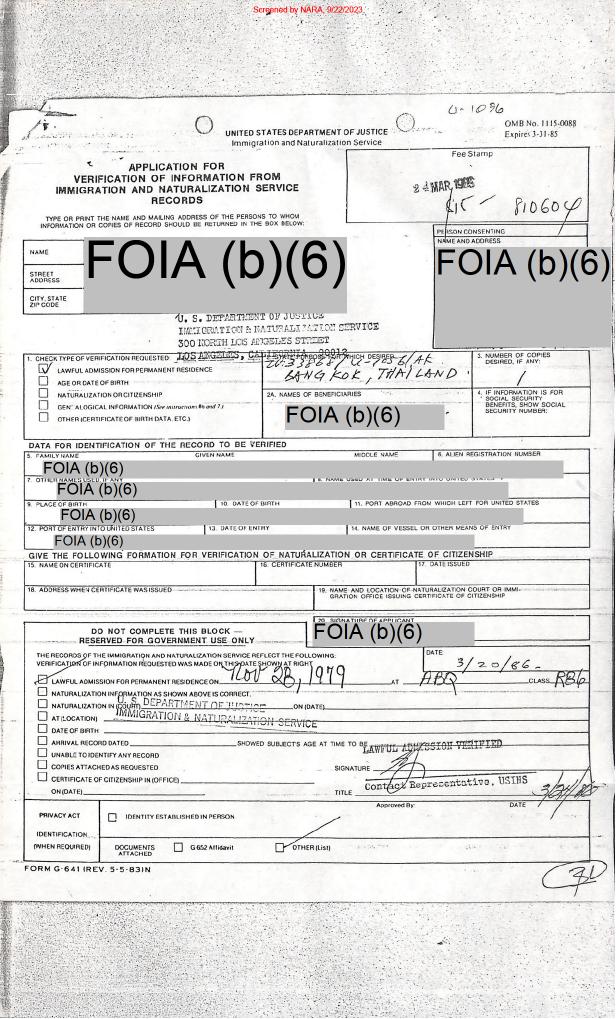 Screened by NARA, 9/22/2023
OMB No. 1115-0088
Expires 3-31-85
UNITED STATES DEPARTMENT OF JUSTICE
Immigration and Naturalization Service
APPLICATION FOR
VERIFICATION OF INFORMATION FROM
IMMIGRATION AND NATURALIZATION SERVICE
RECORDS
Fee Stamp
810604
TYPE OR PRINT THE NAME AND MAILING ADDRESS OF THE PERSONS TO WHOM
INFORMATION OR COPIES OF RECORD SHOULD BE RETURNED IN THE BOX BELOW:
PERSON CONSENTING
NAME AND ADDRESS
NAME
STREET
ADDRESS
CITY, STATE
ZIP CODE
FOIA (b)(6)
FOIA (b)(6)
U. S. DEPARTMENT OF JUSTICE
IMMIGRATION & NATURALIZATION SERVICE
300 NORTH LOS ANGELES STREET
LOS ANGELES, CALIFORNIA 90012
1. CHECK TYPE OF VERIFICATION REQUESTED
LAWFUL ADMISSION FOR PERMANENT RESIDENCE
AGE OR DATE OF BIRTH
NATURALIZATION OR CITIZENSHIP
GENEALOGICAL INFORMATION (See instructions 6b and 7.)
OTHER (CERTIFICATE OF BIRTH DATA, ETC.)
BANGKOK, THAILAND
2A. NAMES OF BENEFICIARIES
FOIA (b)(6)
3. NUMBER OF COPIES
DESIRED, IF ANY:
1
4. IF INFORMATION IS FOR
SOCIAL SECURITY
BENEFITS, SHOW SOCIAL
SECURITY NUMBER:
DATA FOR IDENTIFICATION OF THE RECORD TO BE VERIFIED
5. FAMILY NAME GIVEN NAME MIDDLE NAME 6. ALIEN REGISTRATION NUMBER
FOIA (b)(6)
7. OTHER NAMES USED, IF ANY 8. NAME USED AT TIME OF ENTRY INTO UNITED STATES
FOIA (b)(6)
9. PLACE OF BIRTH 10. DATE OF BIRTH 11. PORT ABROAD FROM WHICH LEFT FOR UNITED STATES
FOIA (b)(6)
12. PORT OF ENTRY INTO UNITED STATES 13. DATE OF ENTRY 14. NAME OF VESSEL OR OTHER MEANS OF ENTRY
FOIA (b)(6)
GIVE THE FOLLOWING FORMATION FOR VERIFICATION OF NATURALIZATION OR CERTIFICATE OF CITIZENSHIP
15. NAME ON CERTIFICATE 16. CERTIFICATE NUMBER 17. DATE ISSUED
18. ADDRESS WHEN CERTIFICATE WAS ISSUED 19. NAME AND LOCATION OF NATURALIZATION COURT OR IMMI-
GRATION OFFICE ISSUING CERTIFICATE OF CITIZENSHIP
20. SIGNATURE OF APPLICANT
FOIA (b)(6)
DO NOT COMPLETE THIS BLOCK —
RESERVED FOR GOVERNMENT USE ONLY
THE RECORDS OF THE IMMIGRATION AND NATURALIZATION SERVICE REFLECT THE FOLLOWING:
VERIFICATION OF INFORMATION REQUESTED WAS MADE ON THIS DATE SHOWN AT RIGHT
DATE:
3/20/86
LAWFUL ADMISSION FOR PERMANENT RESIDENCE ON Nov 28, 1979 AT ABQ CLASS RB6
NATURALIZATION INFORMATION AS SHOWN ABOVE IS CORRECT.
NATURALIZATION IN (COURT) ON (DATE)
U. S. DEPARTMENT OF JUSTICE
AT (LOCATION)
IMMIGRATION & NATURALIZATION SERVICE
DATE OF BIRTH
ARRIVAL RECORD DATED SHOWED SUBJECT'S AGE AT TIME TO BE
LAWFUL ADMISSION VERIFIED
UNABLE TO IDENTIFY ANY RECORD
COPIES ATTACHED AS REQUESTED SIGNATURE
CERTIFICATE OF CITIZENSHIP IN (OFFICE)
Contact Representative, USINS
ON (DATE) TITLE
Approved By: DATE
PRIVACY ACT
IDENTITY ESTABLISHED IN PERSON
IDENTIFICATION
(WHEN REQUIRED)
DOCUMENTS
ATTACHED
G 652 Affidavit
OTHER (List)
FORM G-641 (REV. 5-5-83)N